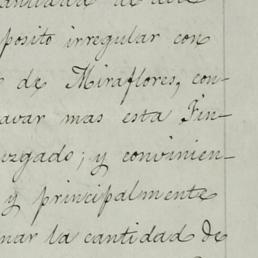 posito irregular con
de Miraflores, con-
avar mas esta Fin-
uzgado; y convinien-
y principalmente
nar la cantidad de